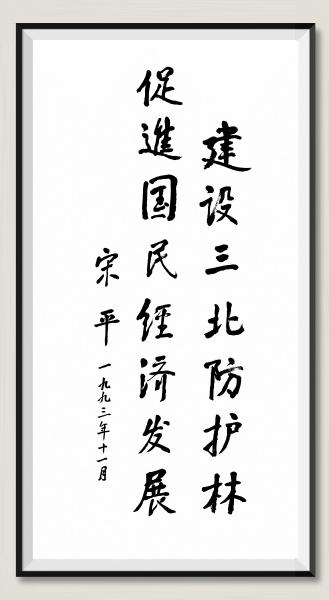 建设三北防护林
促進国民经济发展
宋平
一九九三年十一月